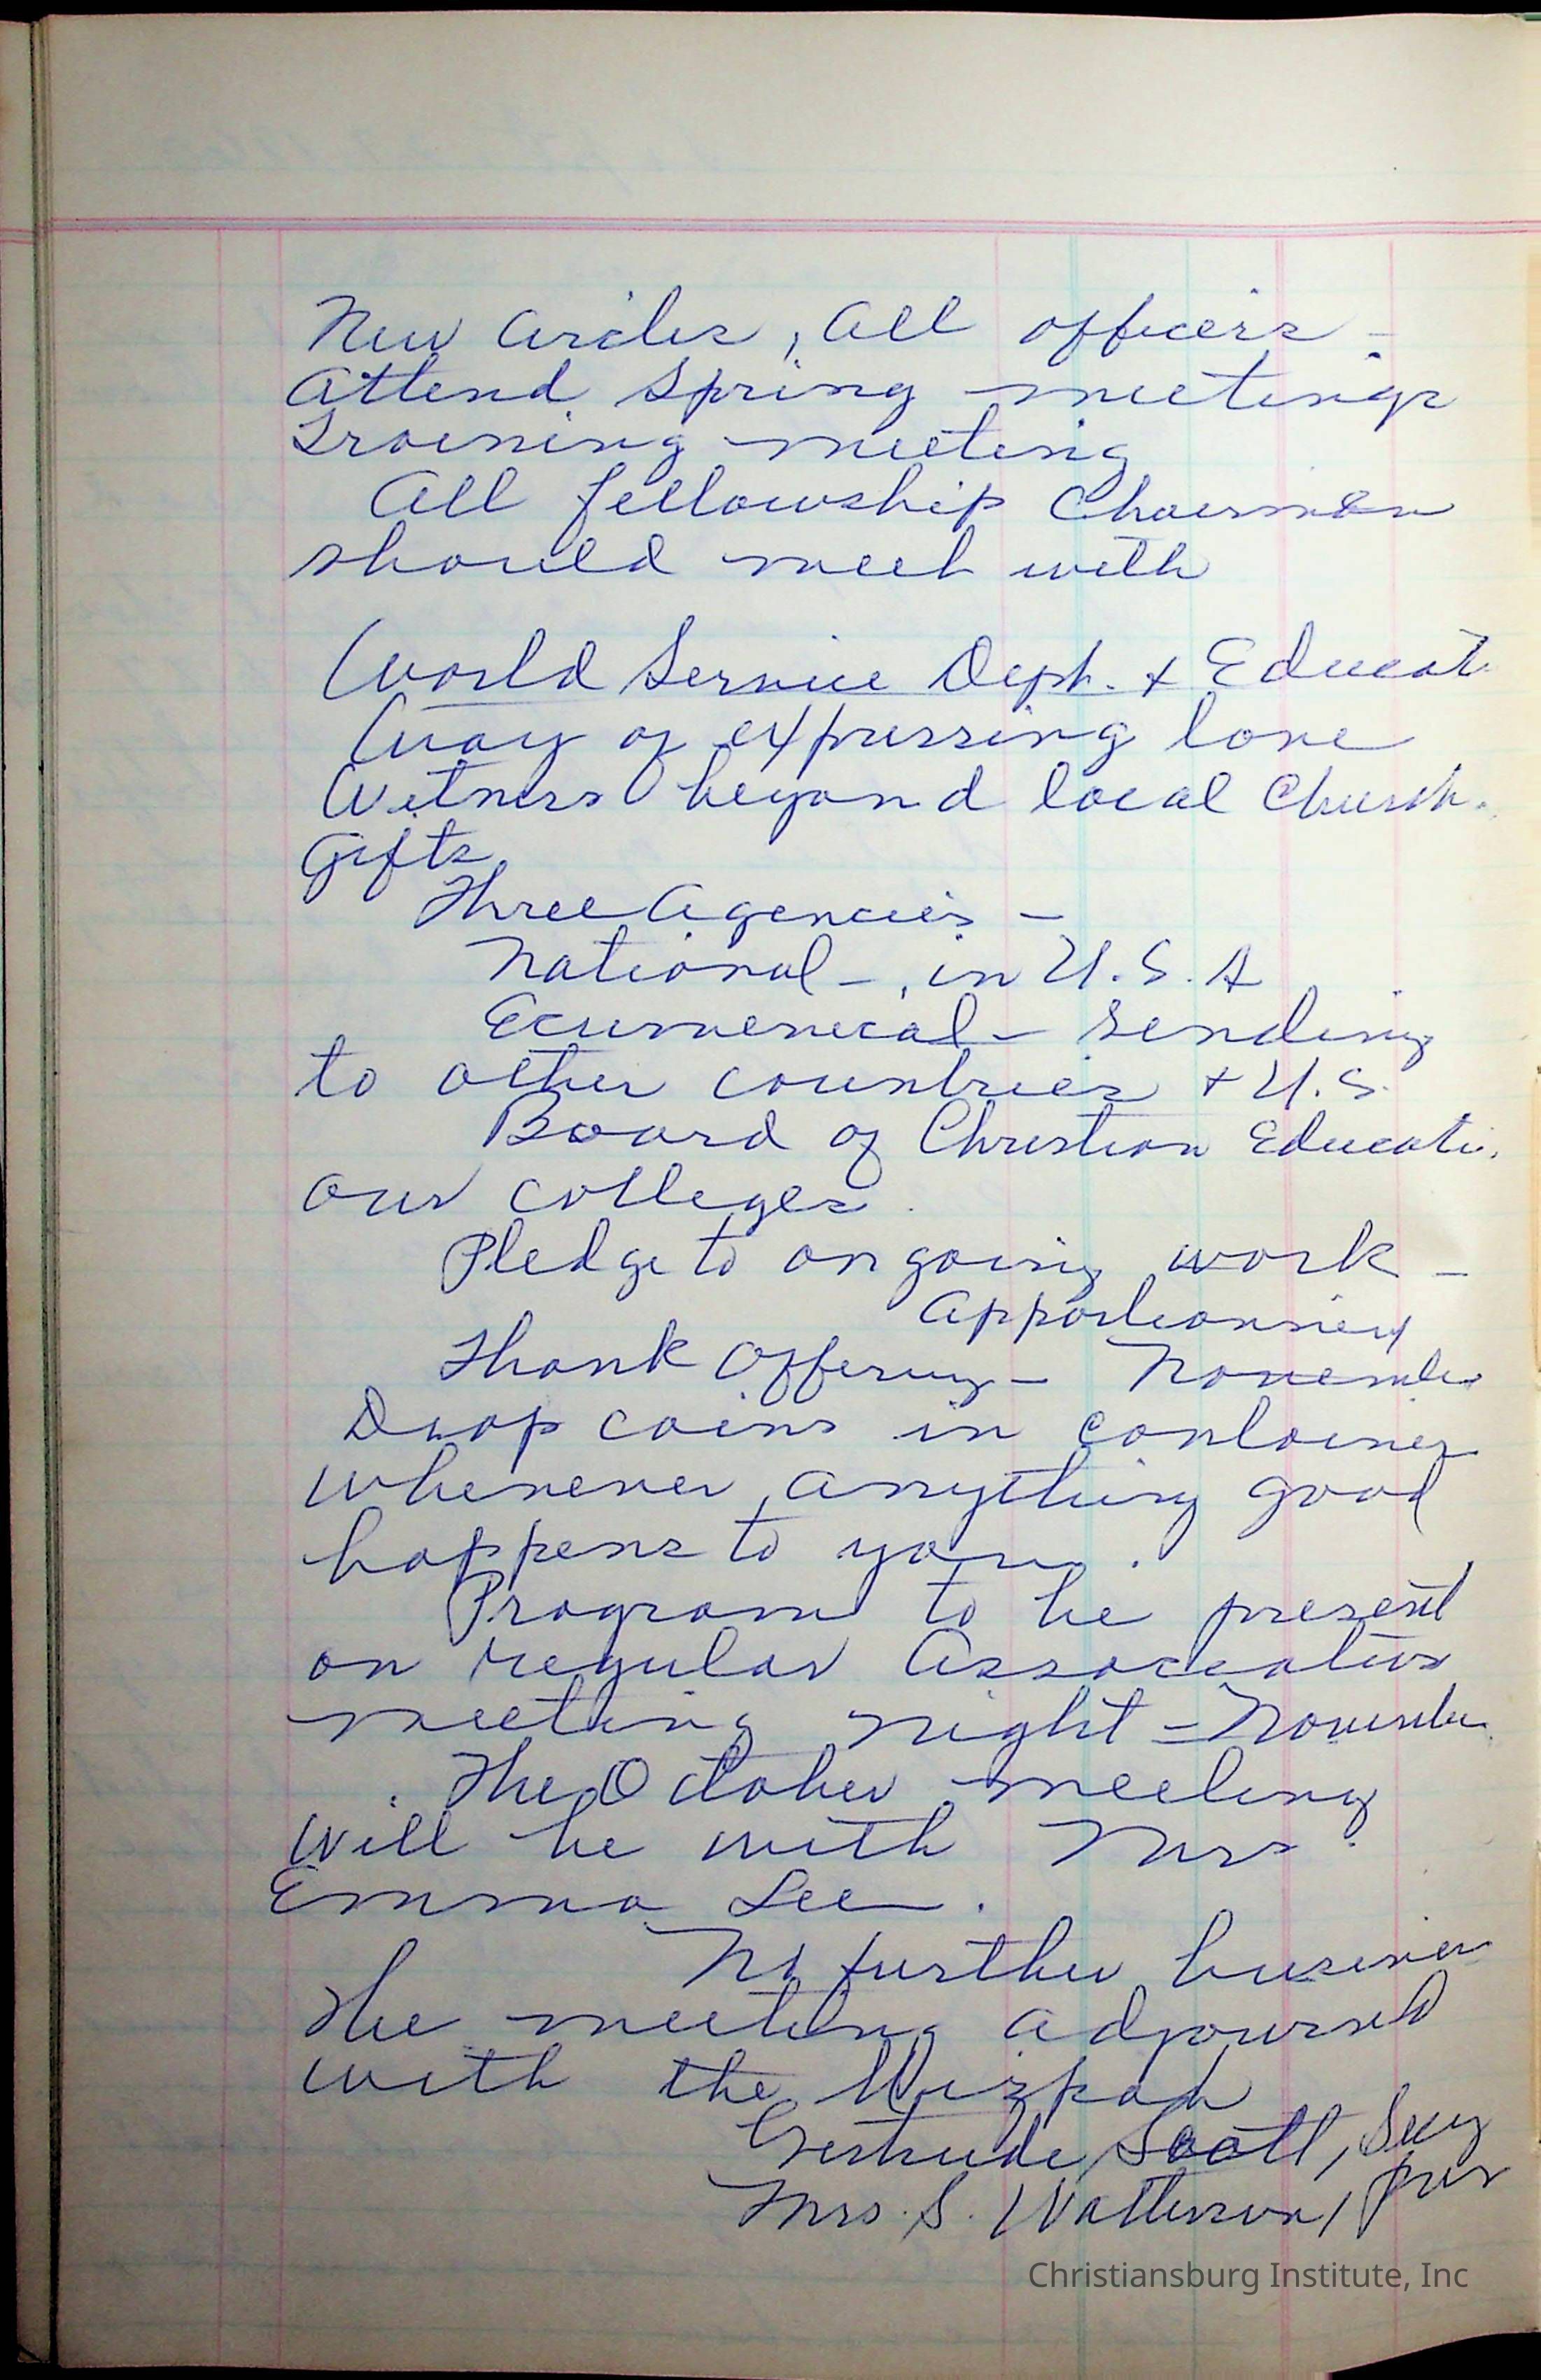 New Circles, All officers -
Attend Spring meetings
Training meeting
All fellowship Chairman
should meet with
World Service Dept. + Educat.
Way of expressing love
Witness beyond local Church.
Gifts
Three Agencies -
National -, in U.S.A
Ecumenical - sending
to other countries + U.S.
Board of Christian Educati.
our colleges.
Pledge to on going work -
Apportionment
Thank Offering - November
Drop coins in container
whenever anything good
happens to you.
Program to be present
on regular Association
meeting night - November
The October meeting
will be with Mrs.
Emma Lee.
No further business
the meeting adjourned
with the Mizpah
Gertrude Scott, Secy
Mrs. S. Watterson, Pres
Christiansburg Institute, Inc